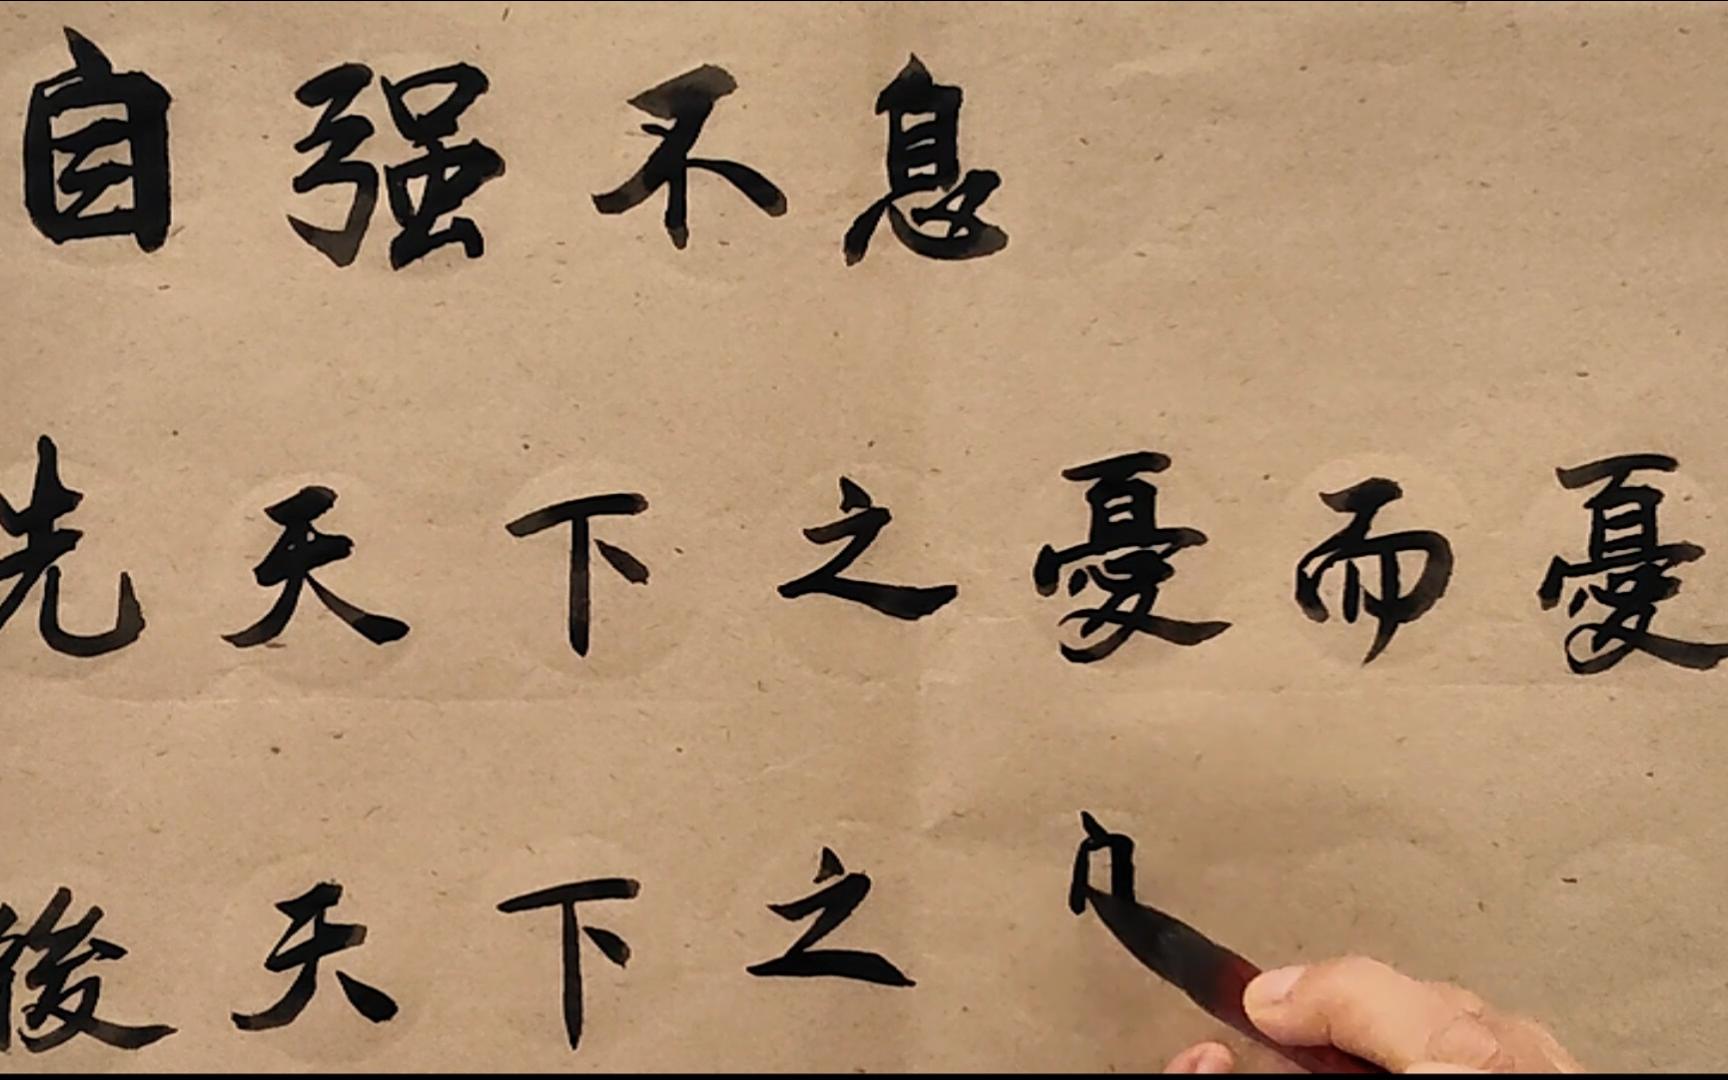 自强不息
先天下之憂而憂
後天下之